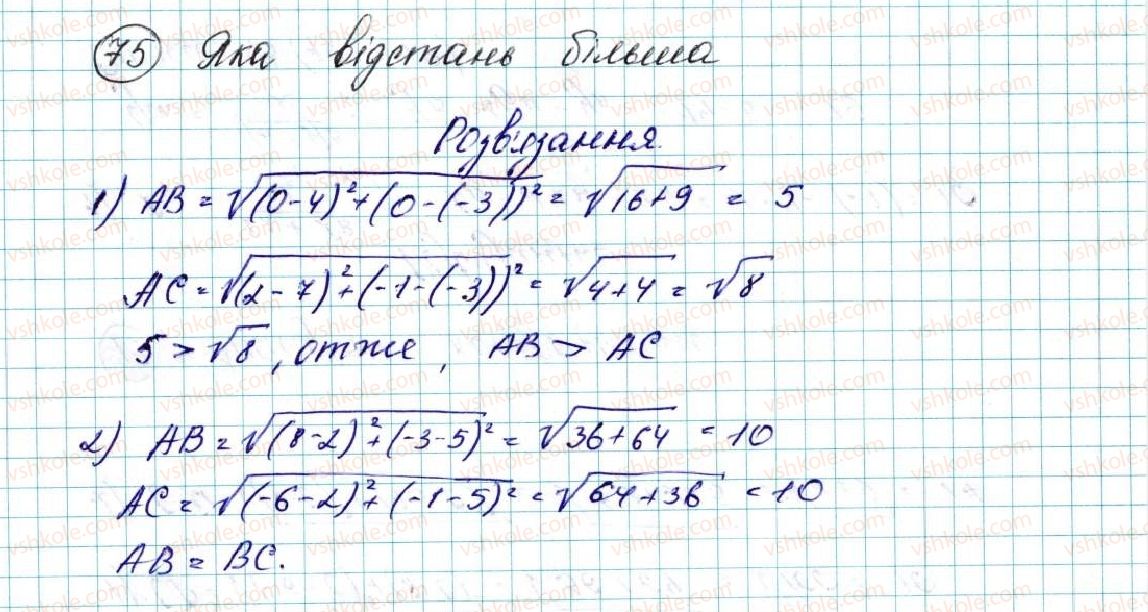 75 Яка відстань більша
Розв'язання.
1) AB = √(0-4)²+(0-(-3))² = √16+9 = 5
AC = √(2-7)²+(-1-(-3))² = √4+4 = √8
5 > √8, отже, AB > AC
2) AB = √(8-2)²+(-3-5)² = √36+64 = 10
AC = √(-6-2)²+(-1-5)² = √64+36 = 10
AB = BC.